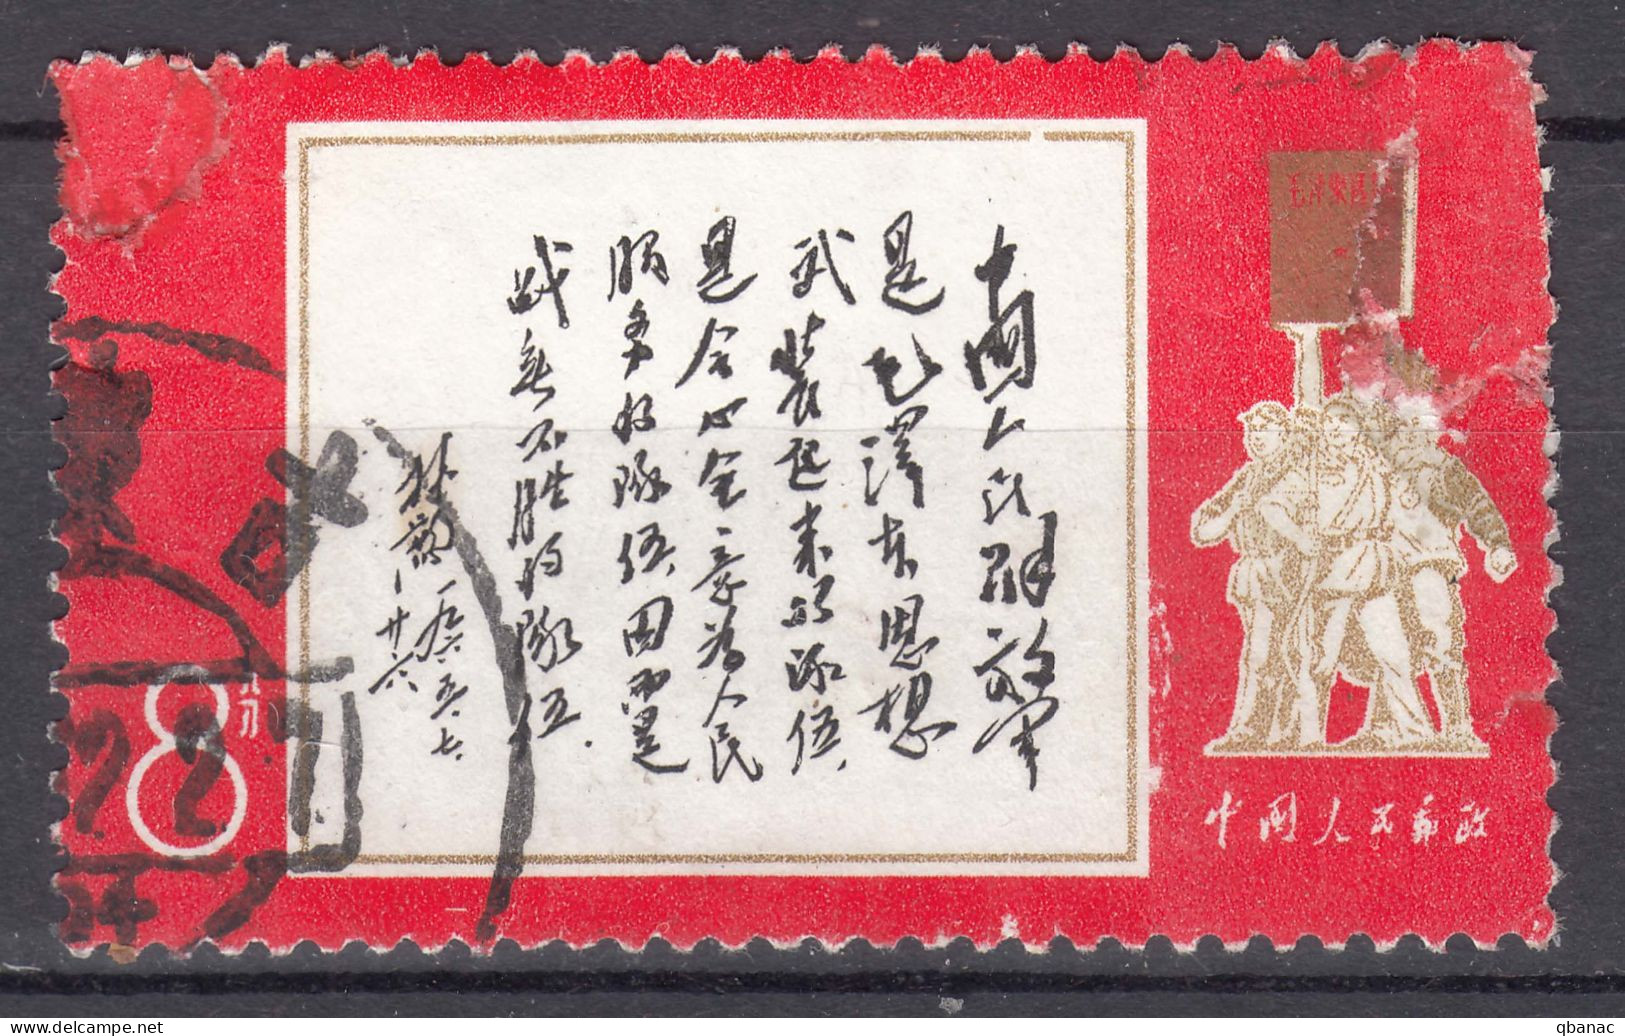 中国人民解放军
是毛泽东思想
武装起来的队伍,
是全心全意为人民
服务的队伍,因而是
战无不胜的队伍.
林彪 一九六五.七.
廿六
毛泽东
8
八分
中国人民邮政
qbanac